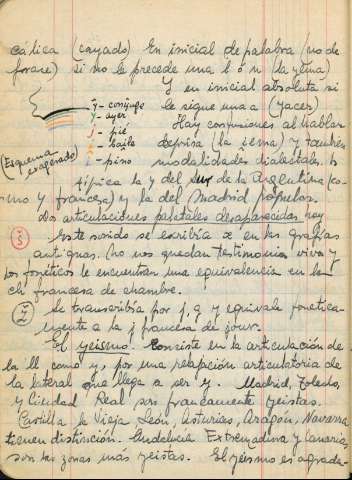 cática (cayado) En inicial de palabra (no de
forase) si no le precede una l ó n (la yema)
Y en inicial absoluta si
le sigue una a (yacer)
ŷ - conjuge
y - ayer
Hay confusiones al hablar
j - pie
deprisa (la iema) y también
i - baile
(Esquema exagerado)
i - pino
modalidades dialectales. Es
típica la y del sur de la Argentina (co-
mo y francesa) y la del Madrid popular.
Dos articulaciones palatales desaparecidas hoy
š Este sonido se escribía x en las grafías
antiguas. (no nos quedan testimonios vivos y
los fonéticos le encuentran una equivalencia en la
ch francesa de chambre.
ž Se transcribía por j, g y equivale fonetica-
mente a la j francesa de jour.
El yeismo. Consiste en la articulación de
la ll como y, por una relajación articulatoria de
la lateral que llega a ser y. Madrid, Toledo,
y Ciudad Real son francamente yeistas.
Castilla la Vieja León, Asturias, Aragón, Navarra
tienen distinción. Andalucía Extremadura y Canarias
son las zonas más yeistas. El yeismo es agrada-